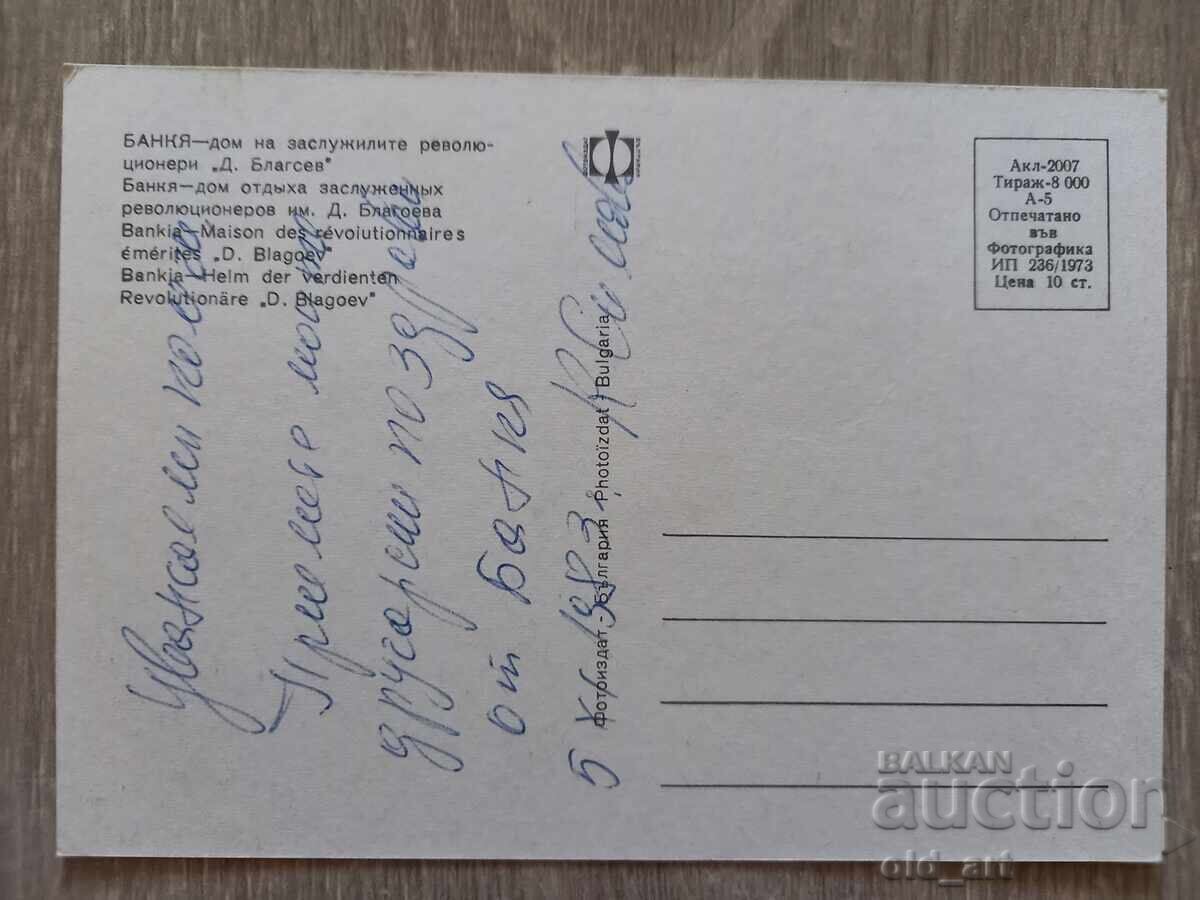 БАНКЯ—дом на заслужилите револю-
ционери „Д. Благсев"
Банкя—дом отдыха заслуженных
революционеров им. Д. Благоева
Bankia—Maison des révoiutionnaires
émérites „D. Blagoev"
Bankia—Helm der verdienten
Revolutionäre „D. Blagoev"
Акл-2007
Тираж-8 000
А-5
Отпечатано
във
Фотографика
ИП 236/1973
Цена 10 ст.
Фотоиздат - България · Photoïzdat - Bulgaria
Уважаеми
Приемете моите
другарски поздрави
от Банкя
5
BALKAN
auction
old_art